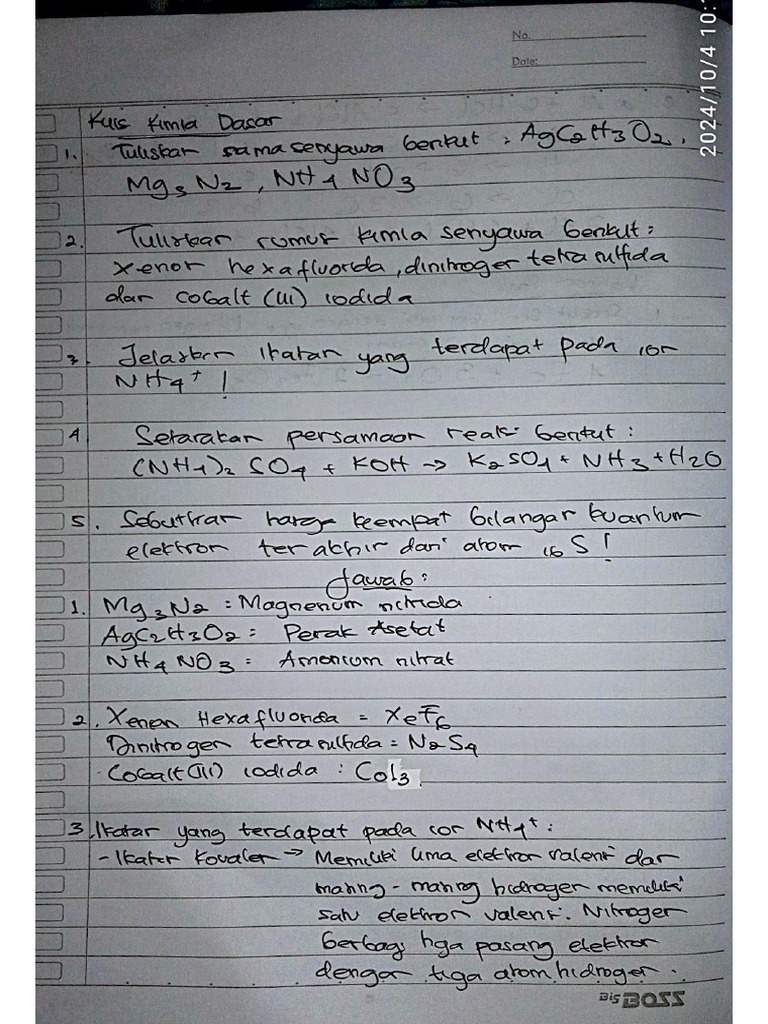 No.
Date:
2024/10/4 10:
Kuis Kimia Dasar
1. Tuliskan nama senyawa berikut : AgC2H3O2,
Mg3N2, NH4NO3
2. Tuliskan rumus kimia senyawa berikut :
xenon hexafluorida, dinitrogen tetra sulfida
dan cobalt (III) iodida
3. Jelaskan ikatan yang terdapat pada ion
NH4+ !
4 Setarakan persamaan reaksi berikut :
(NH4)2 SO4 + KOH → K2SO4 + NH3 + H2O
5. Sebutkan harga keempat bilangan kuantum
elektron terakhir dari atom 16 S !
Jawab :
1. Mg3N2 : Magnesium nitrida
AgC2H3O2 : Perak Asetat
NH4NO3 : Amonium nitrat
2. Xenon Hexafluorida = XeF6
Dinitrogen tetrasulfida = N2S4
Cobalt (III) iodida : CoI3
3. Ikatan yang terdapat pada ion NH4+ :
- Ikatan Kovalen → Memiliki lima elektron valensi dan
masing - masing hidrogen memiliki
satu elektron valensi. Nitrogen
berbagi tiga pasang elektron
dengan tiga atom hidrogen .
Bis BOSS